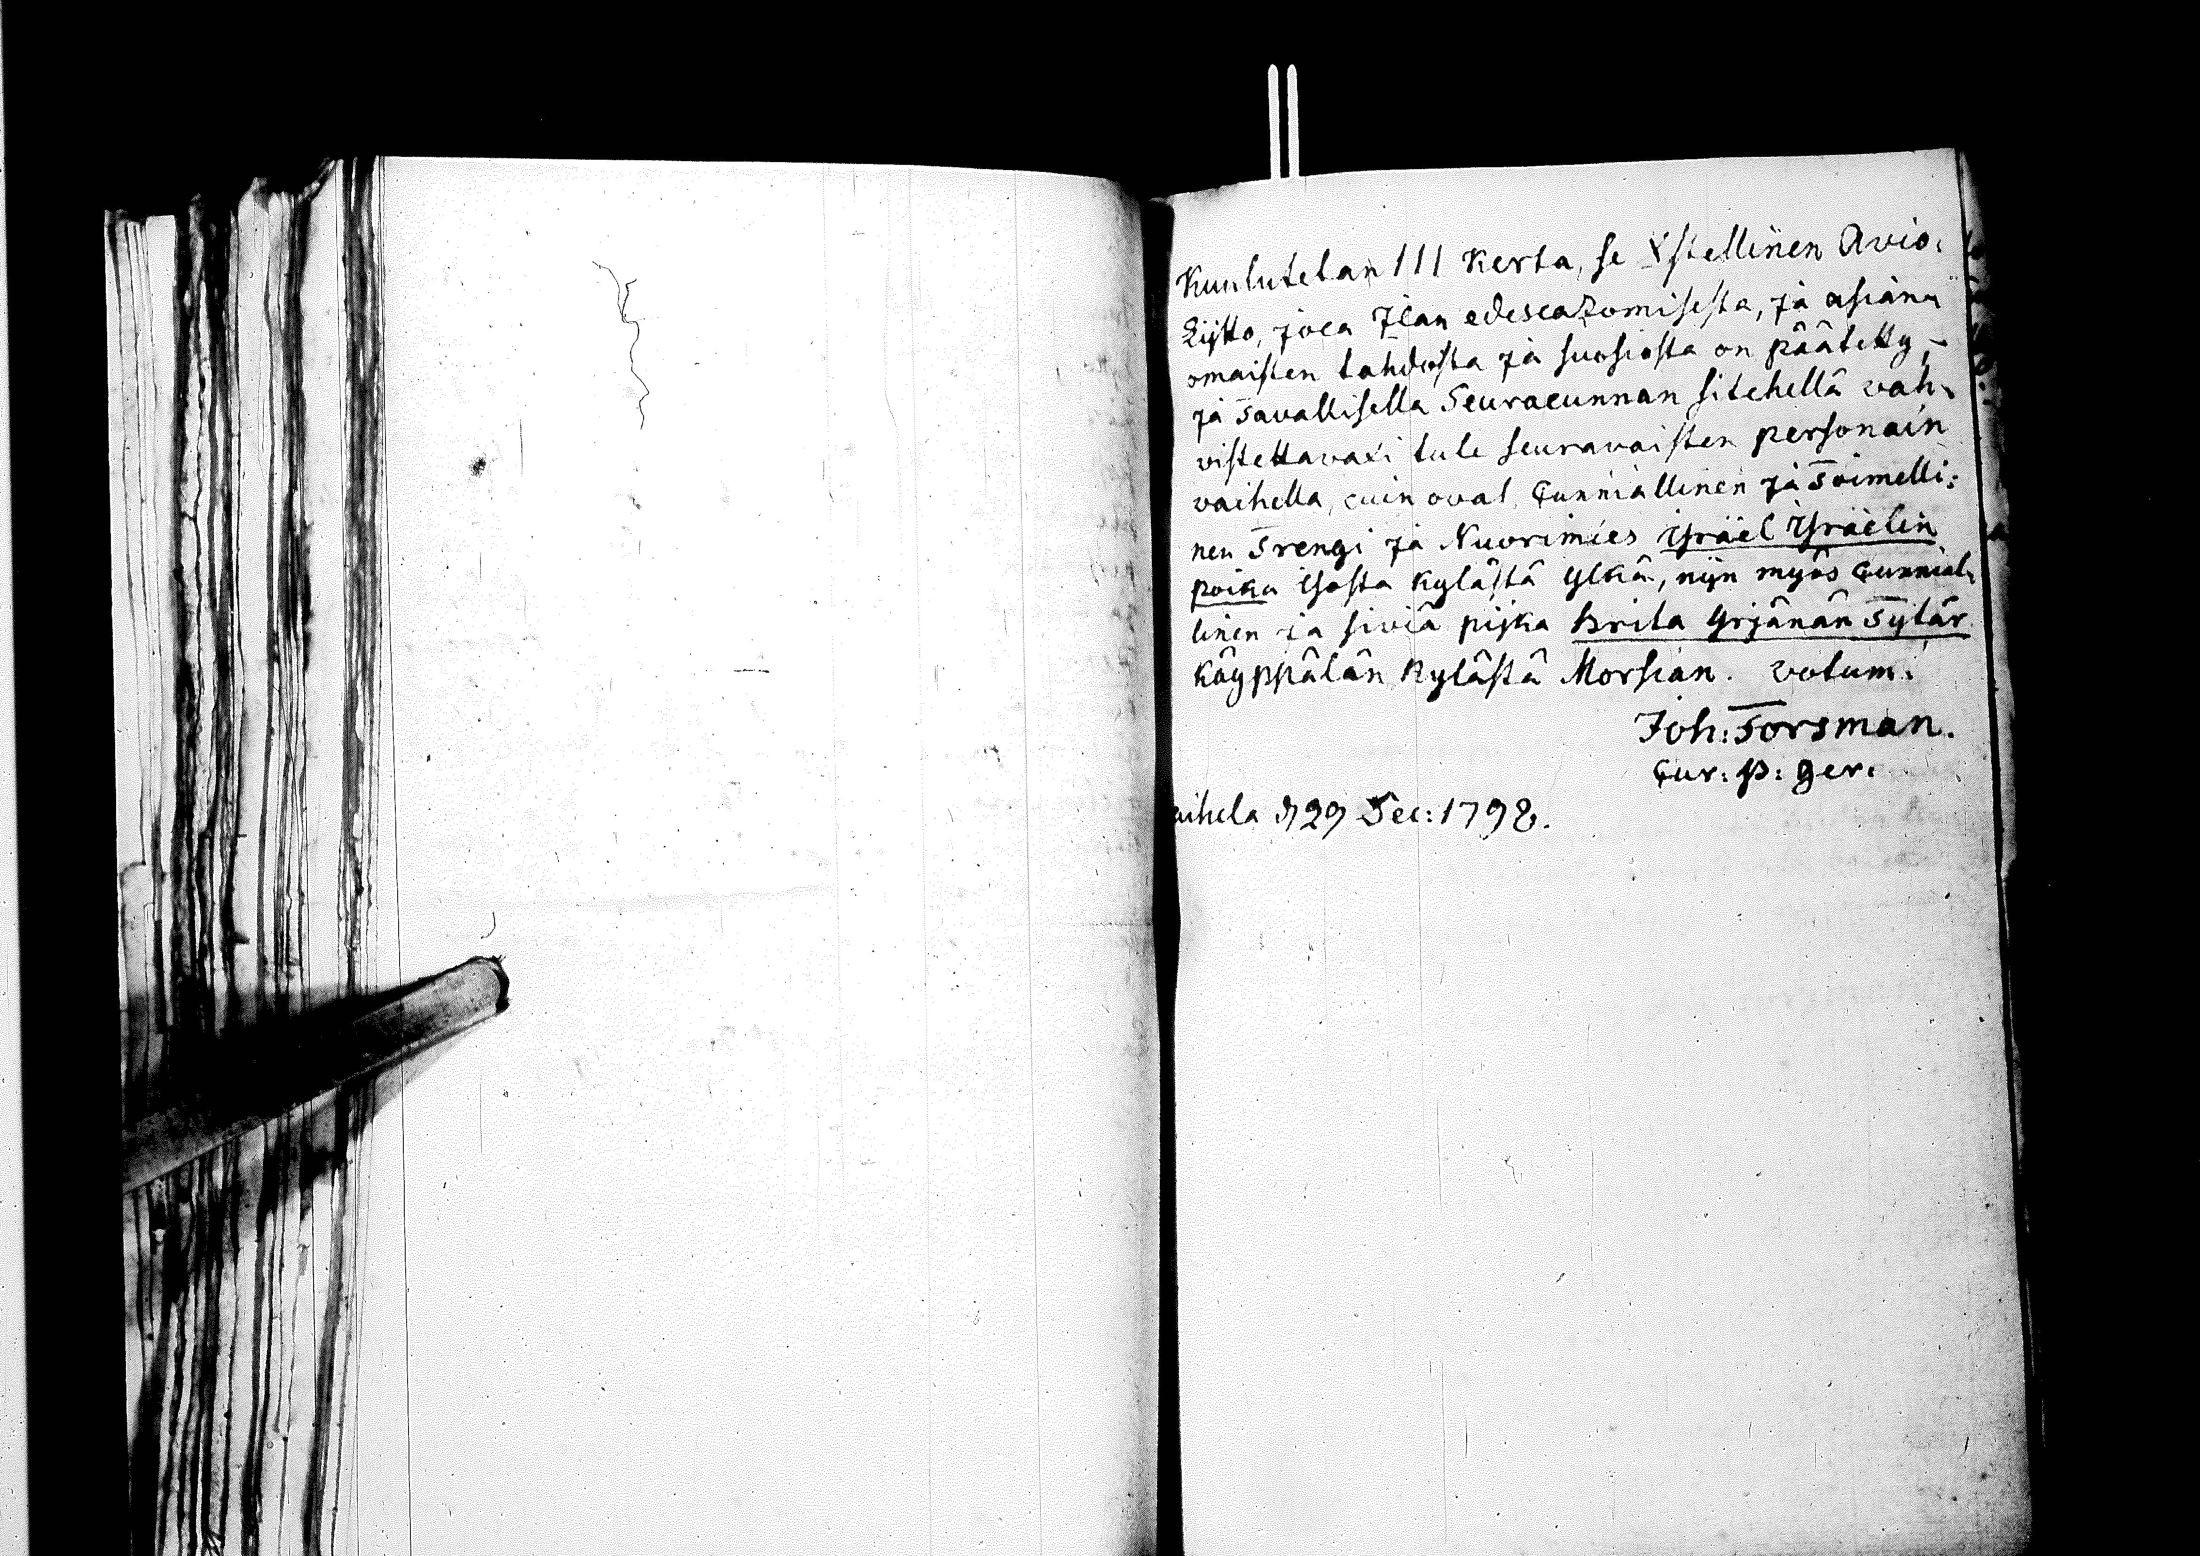 Kuulutetan III Kerta, se Xstellinen Avio:
Lijtto, joca Jlan edescatzomisesta, ja asian
omaisten tahdosta ja suosiosta on päätetty,
ja Tavallisella Seuracunnan sitehellä vah:
vistettavaxi tule seuravaisten personain
vaihella, cuin ovat, Cunniallinen ja Toimelli:
nen Trengi ja Nuorimies Israel Israelin
poika Isosta Kylästä Ylkä, nijn myös Cunnial:
linen ja siviä pijka Brita Yrjänän Tytär
käyppälän Kylästä Morsian. votum.
Joh: Forsman.
Cur: p: ger:
aihela d 29 Dec: 1798.